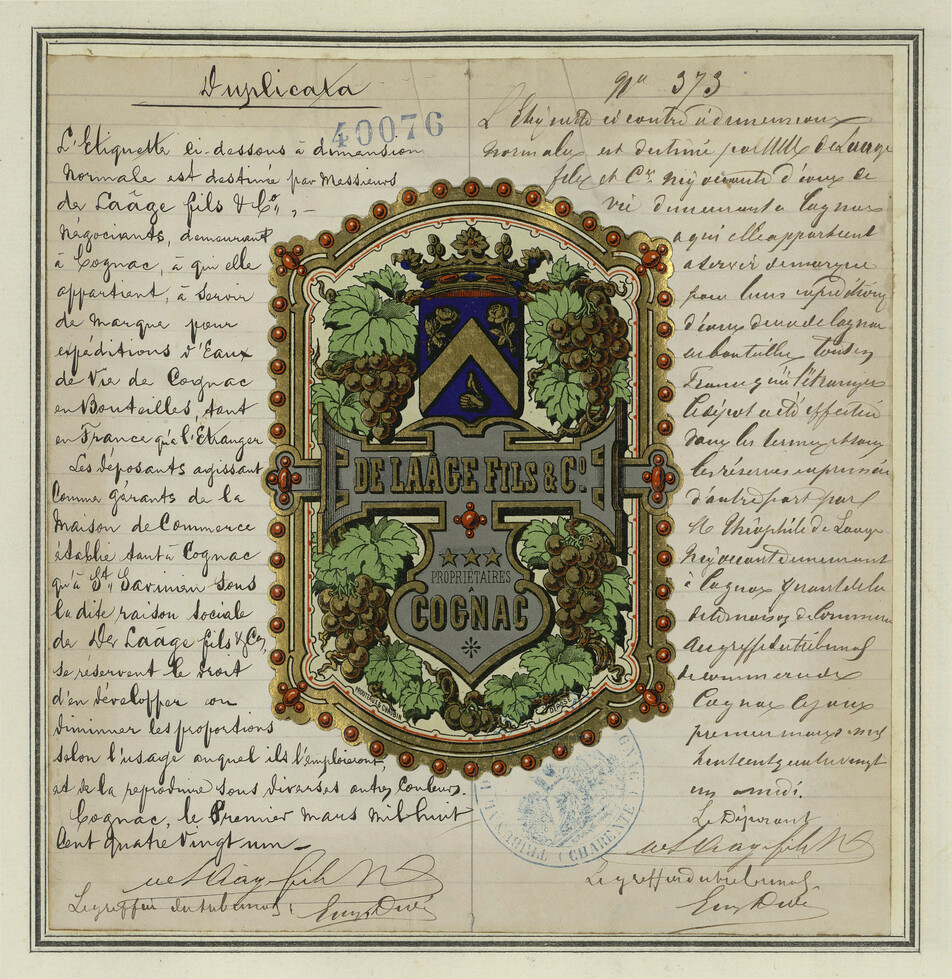 Duplicata
40076
L'Etiquette ci-dessous à dimension
normale est destinée par Messieurs
de Laâge fils & Co, -
négociants, demeurant
à Cognac, à qui elle
appartient, à servir
de marque pour
expéditions d'Eaux
de Vie de Cognac
en Bouteilles, tant
en France qu'à l'Etranger
Les déposants agissant
comme gérants de la
Maison de Commerce
établie tant à Cognac
qu'à St Savinien sous
la dite raison sociale
de De Laâge fils & Co,
se réservent le droit
d'en développer ou
diminuer les proportions
selon l'usage auquel ils l'emploieront,
et de la reproduire sous diverses autres couleurs.
Cognac, le Premier Mars Mil huit
Cent quatre vingt un -
Le greffier du tribunal
No 373
L'Etiquette ci contre à dimensions
normales est destinée par MM de Laage
fils et Cie négociants d'eaux de
vie demeurant à Cognac
a qui elle appartient
a servir de marque
pour leurs expéditions
d'eaux de vie de Cognac
en bouteilles tant en
France qu'à l'étranger
le dépôt a été effectué
dans les termes et sous
les réserves exprimées
d'autre part par
M Théophile de Laage
négociant demeurant
à Cognac gérant de la
dite maison de Commerce
Au greffe du tribunal
de commerce de
Cognac le jour
premier mars mil
huit cent quatre vingt
un à midi.
Le Déposant
Le greffier du tribunal
DE LAÂGE FILS & Co.
PROPRIETAIRES
À
COGNAC
(CHARENTE)